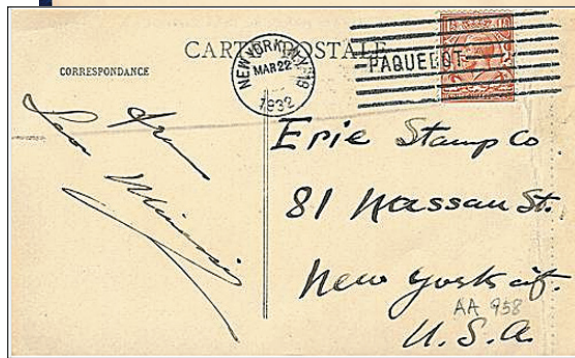 CARTE POSTALE
CORRESPONDANCE
NEW YORK, N.Y.
MAR 22
1932
PAQUEBOT
Erie Stamp Co
81 Nassau St.
New York cit.
AA 958
U.S.A.